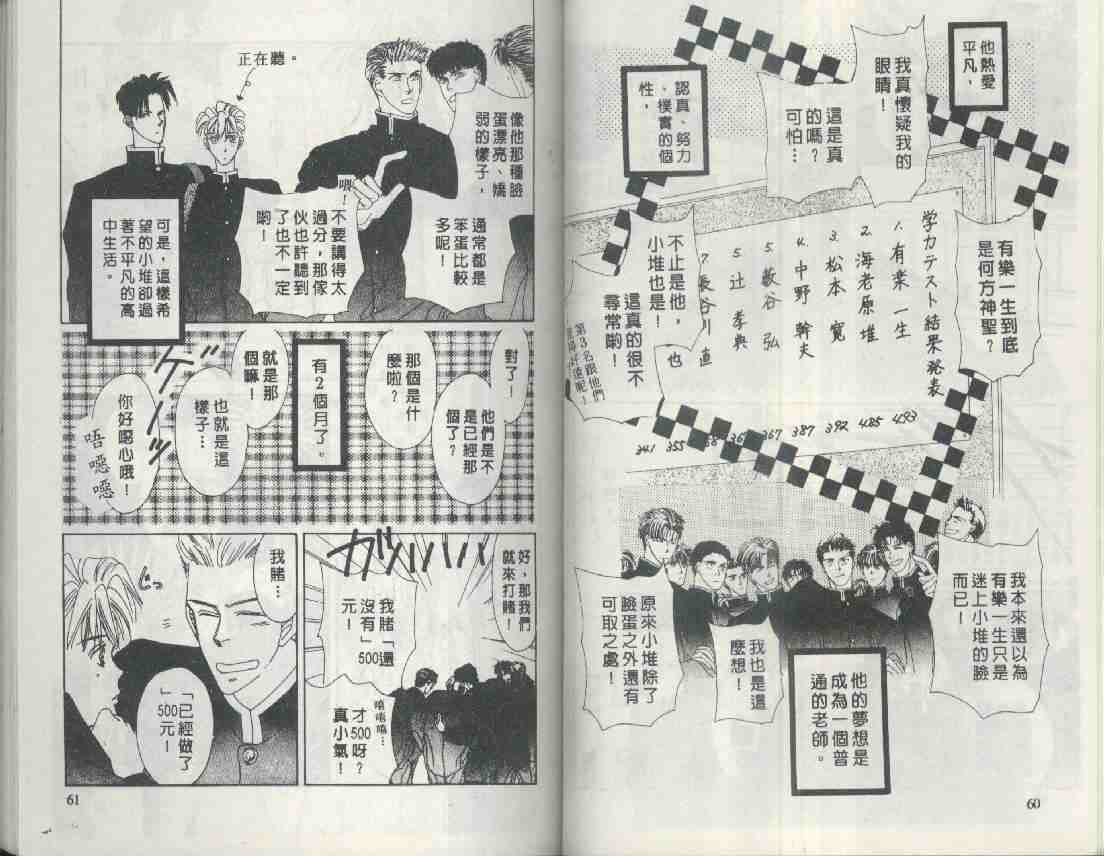 他熱愛
平凡，
我真懷疑我的
眼睛！
這是真
的嗎？
可怕…
認真、努力
、樸實的個
性，
有樂一生到底
是何方神聖？
学力テスト結果発表
1. 有楽一生
2. 海老原堆
3. 松本寛
4. 中野幹夫
5. 薮谷弘
5. 辻孝典
7. 長谷川直
493
485
392
387
367
355
341
不止是他，
小堆也是！
也
這真的很不
尋常喲！
第3名跟他們
我本來還以為
有樂一生只是
迷上小堆的臉
而已！
我也是這
麼想！
原來小堆除了
臉蛋之外還有
可取之處！
他的夢想是
成為一個普
通的老師。
60
像他那種臉
蛋漂亮、嬌
弱的樣子，
通常都是
笨蛋比較
多呢！
喂！
不要講得太
過分，那傢
伙也許聽到
了也不一定
喲！
正在聽。
可是，這樣希
望的小堆卻過
著不平凡的高
中生活。
對了！
他們是不
是已經那
個了？
那個是什
麼啦？
有2個月了。
就是那
個嘛！
也就是這
樣子…
ゲーッ
你好噁心哦！
唔噁噁
好，那我們
就來打賭！
ガハハハ
我賭「還
沒有」500
元！
嘻嘻嘻…
才500呀？
真小氣！
我賭…
じっ
「已經做了
」500元！
61